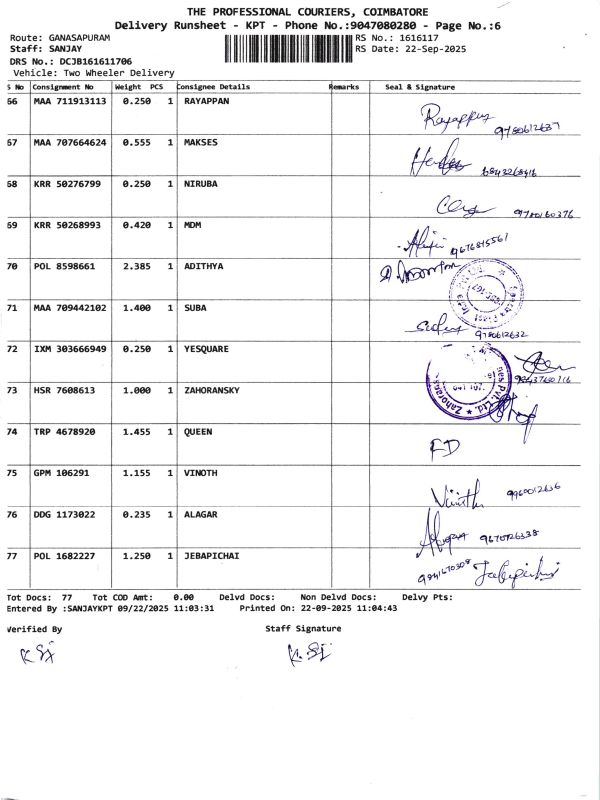 THE PROFESSIONAL COURIERS, COIMBATORE
Delivery Runsheet - KPT - Phone No.:9047080280 - Page No.:6
Route: GANASAPURAM
RS No.: 1616117
Staff: SANJAY
RS Date: 22-Sep-2025
DRS No.: DCJB161611706
Vehicle: Two Wheeler Delivery
S No Consignment No Weight PCS Consignee Details Remarks Seal & Signature
66 MAA 711913113 0.250 1 RAYAPPAN Rayappan
67 MAA 707664624 0.555 1 MAKSES
68 KRR 50276799 0.250 1 NIRUBA 9780160376
69 KRR 50268993 0.420 1 MDM
70 POL 8598661 2.385 1 ADITHYA
71 MAA 709442102 1.400 1 SUBA 9780612632
72 IXM 303666949 0.250 1 YESQUARE
73 HSR 7608613 1.000 1 ZAHORANSKY
74 TRP 4678920 1.455 1 QUEEN
75 GPM 106291 1.155 1 VINOTH Vinoth 9960012636
76 DDG 1173022 0.235 1 ALAGAR
77 POL 1682227 1.250 1 JEBAPICHAI 9841670308
Tot Docs: 77 Tot COD Amt: 0.00 Delvd Docs: Non Delvd Docs: Delvy Pts:
Entered By :SANJAYKPT 09/22/2025 11:03:31 Printed On: 22-09-2025 11:04:43
Verified By Staff Signature